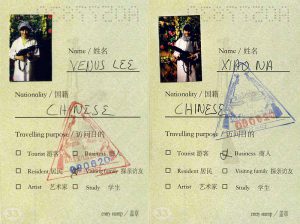 Name / 姓名
VENUS LEE
Nationality / 国籍
CHINESE
Travelling purpose / 访问目的
Tourist 游客
Business 商人
Resident 居民
Visiting family 探亲访友
Artist 艺术家
Study 学生
080620
33
entry stamp / 盖章
Name / 姓名
XIAO NA
Nationality / 国籍
CHINESE
Travelling purpose / 访问目的
Tourist 游客
Business 商人
Resident 居民
Visiting family 探亲访友
Artist 艺术家
Study 学生
080620
33
entry stamp / 盖章